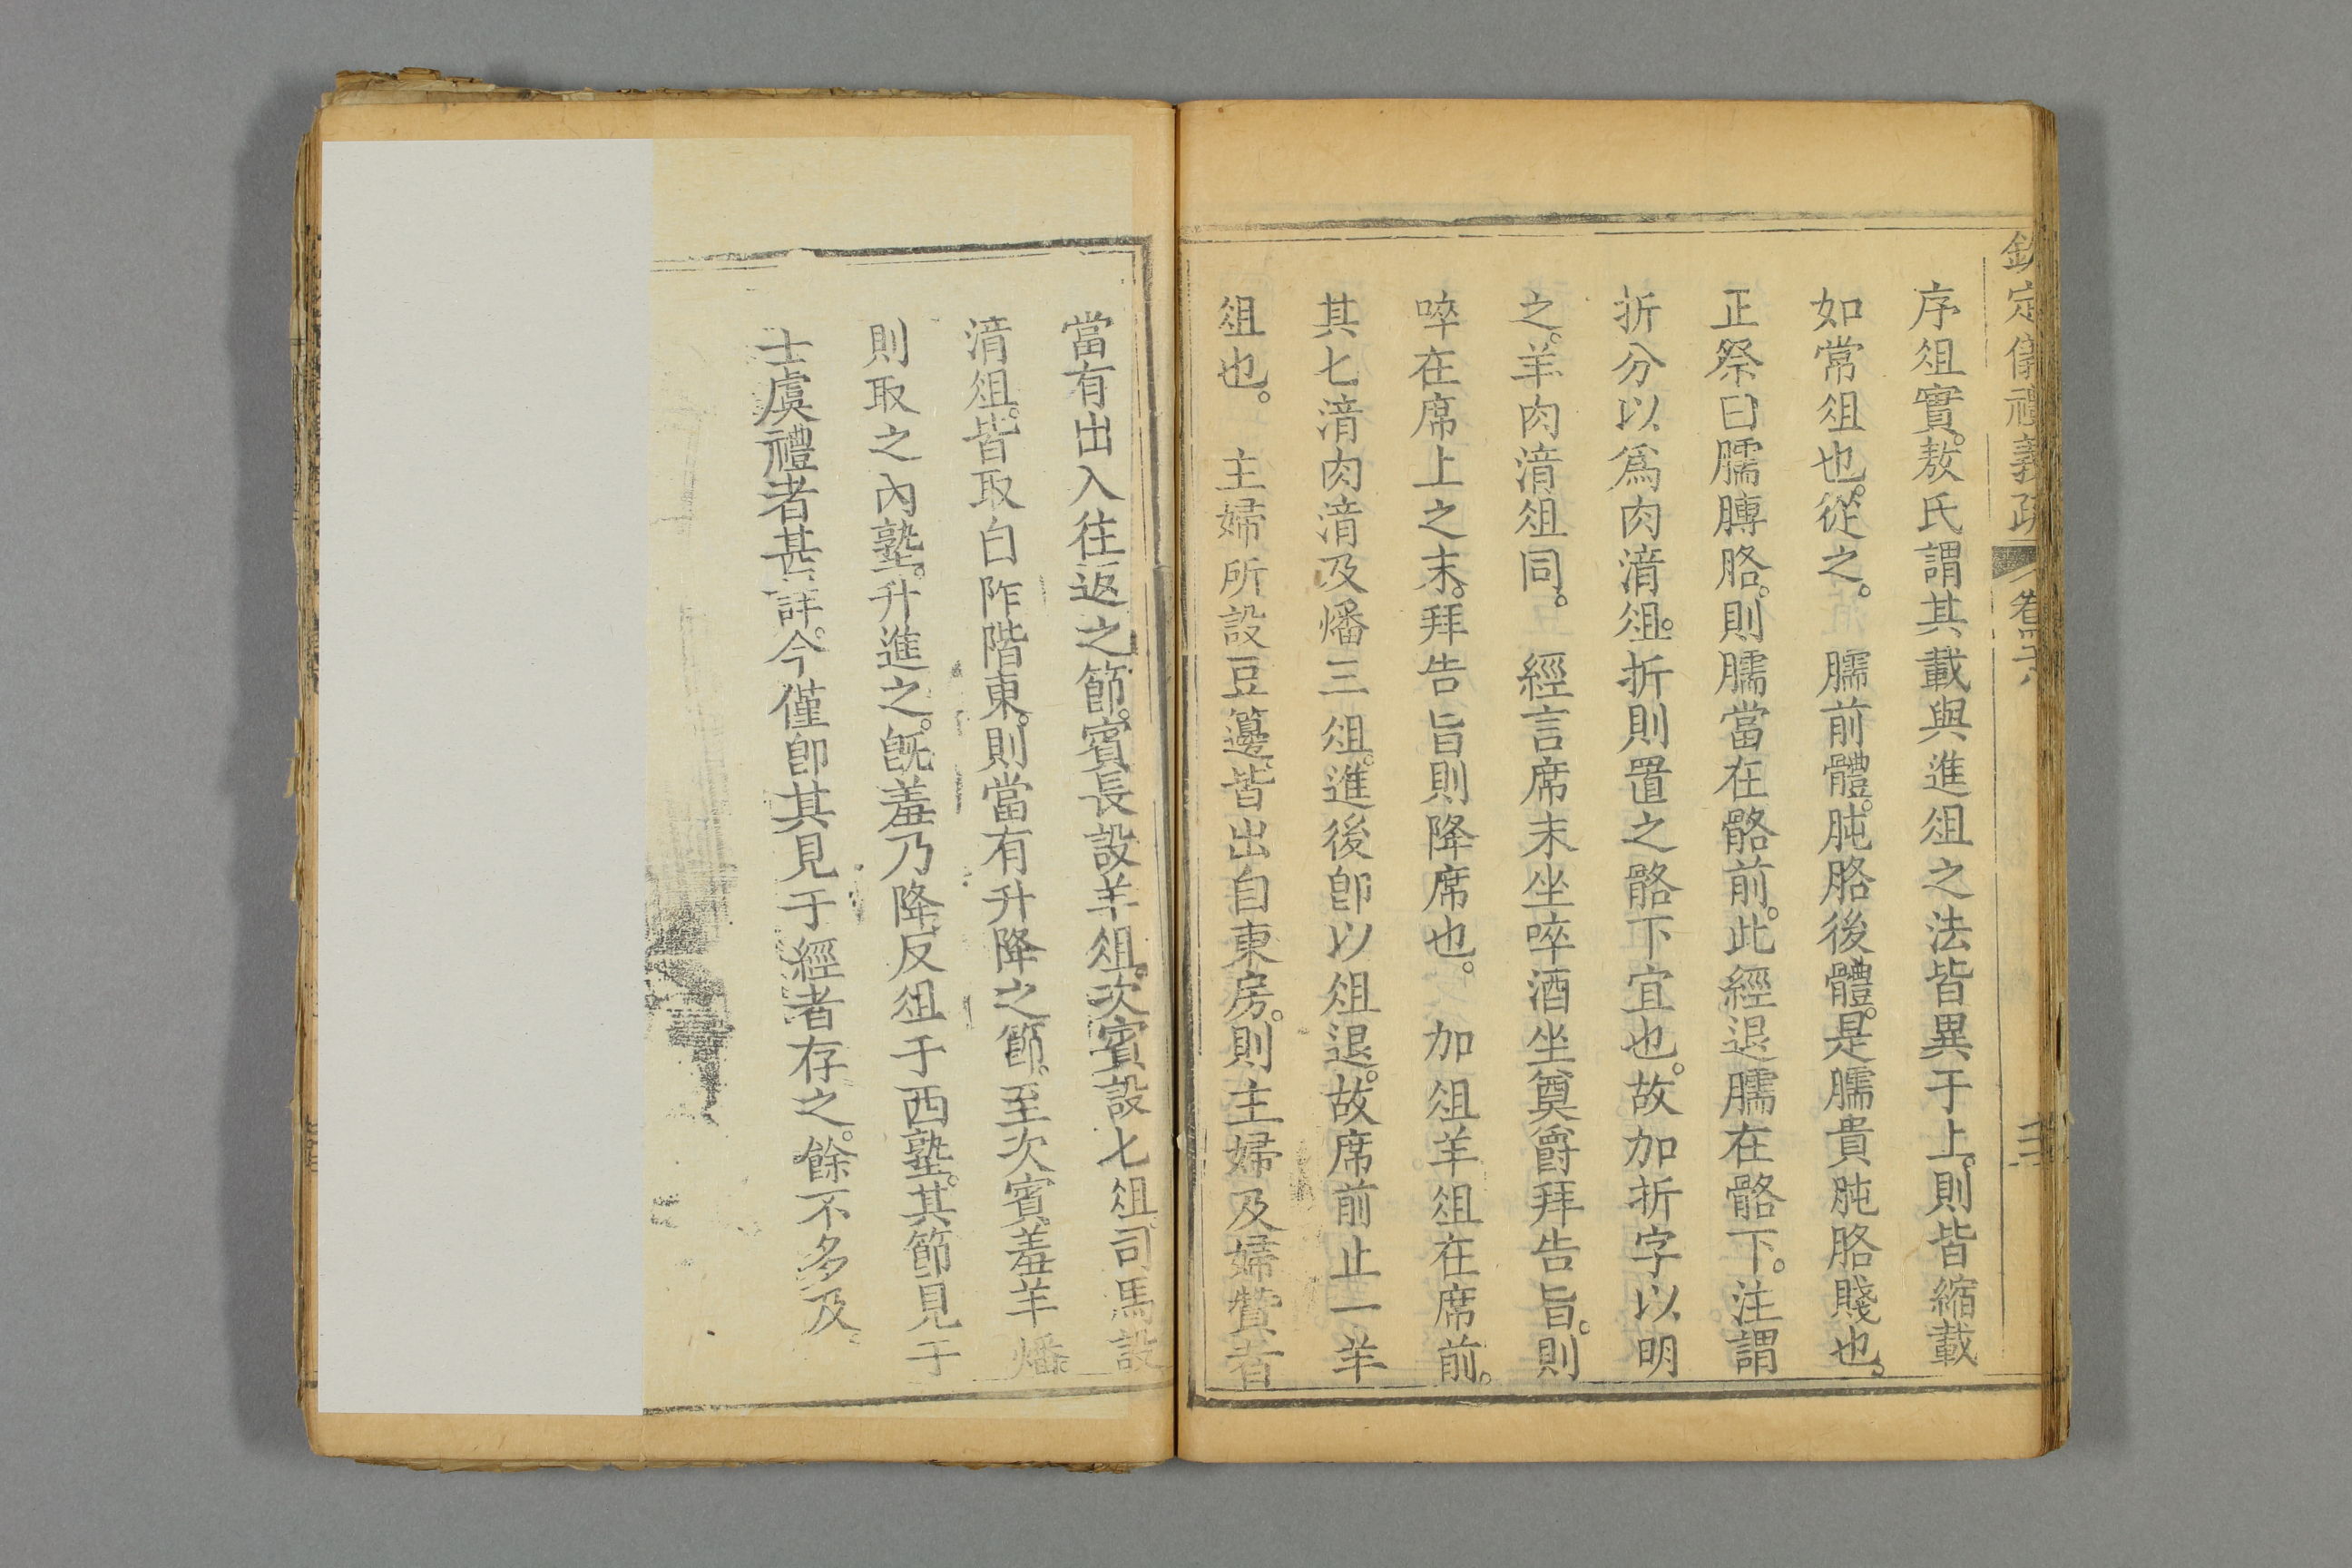 欽定儀禮義疏 卷
序俎實。敖氏謂其載與進俎之法皆異于上。則皆縮載
如常俎也。從之。 臑前體。肫胳後體。是臑貴肫胳賤也。
正祭曰臑膞胳。則臑當在骼前。此經退臑在骼下。注謂
折分以爲肉湇俎。折則置之骼下宜也。故加折字以明
之。羊肉湇俎同。 經言席末坐啐酒坐奠爵拜告旨。則
啐在席上之末。拜告旨則降席也。 加俎羊俎在席前。
其七湇肉湇及燔三俎。進後卽以俎退。故席前止一羊
俎也。 主婦所設豆籩。皆出自東房。則主婦及婦贊者
當有出入往返之節。賓長設羊俎。次賓設七俎司馬設
湇俎。皆取白阼階東。則當有升降之節。至次賓羞羊燔。
則取之內塾。升進之。旣羞乃降反俎于西塾。其節見于
士虞禮者甚詳。今僅卽其見于經者存之。餘不多及。